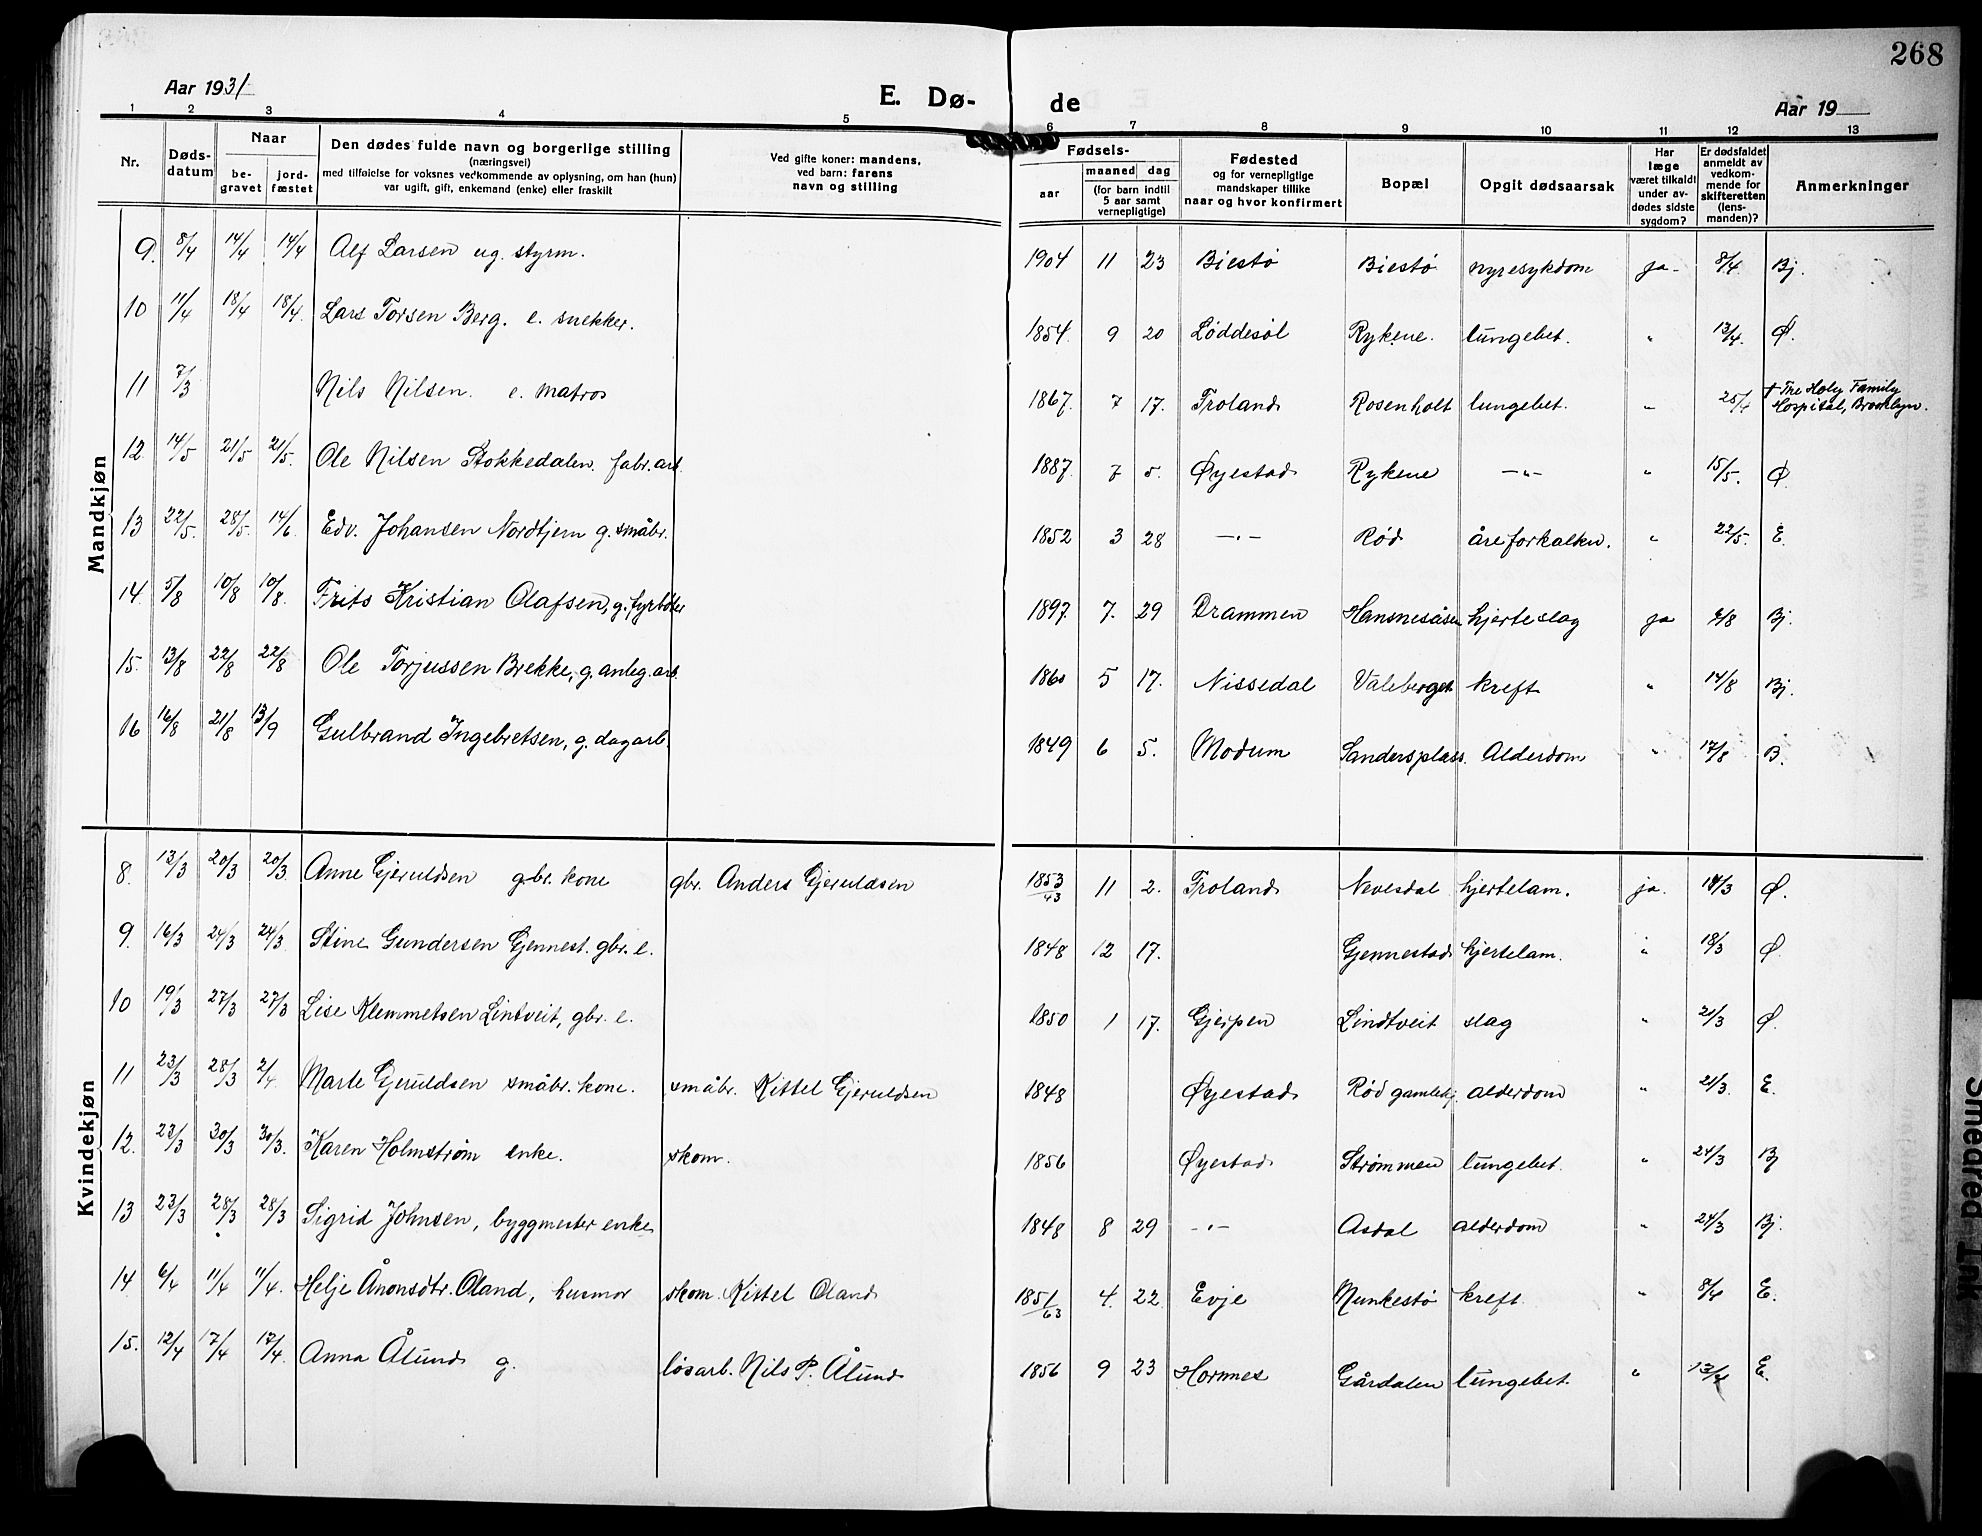 268
Aar 1931
E. Dø- de
Aar 19
1 2 3 4 5 6 7 8 9 10 11 12 13
Nr.
Døds-
datum
Naar
be-
gravet
jord-
fæstet
Den dødes fulde navn og borgerlige stilling
(næringsvei)
med tilføielse for voksnes vedkommende av oplysning, om han (hun)
var ugift, gift, enkemand (enke) eller fraskilt
Ved gifte koner: mandens,
ved barn: farens
navn og stilling
Fødsels-
aar
maaned dag
(for barn indtil
5 aar samt
vernepligtige)
Fødested
og for vernepligtige
mandskaper tillike
naar og hvor konfirmert
Bopæl
Opgit dødsaarsak
Har
læge
været tilkaldt
under av-
dødes sidste
sygdom?
Er dødsfaldet
anmeldt av
vedkom-
mende for
skifteretten
(lens-
manden)?
Anmerkninger
Mandkjøn
9. 8/4 14/4 14/4 Alf Larsen ug. styrm. 1904 11 23 Biestø Biestø nyresykdom ja 8/4 Bj.
10 11/4 18/4 18/4. Lars Torsen Berg. e. snekker. 1854. 9 20 Løddesøl Rykene. lungebet. " 13/4. Ø.
11 7/3 Nils Nilsen. e. matros 1867. 7 17. Froland Rosenholt lungebet. " 25/4 † The Holy Family
Hospital, Brooklyn.
12 14/5 21/5 21/5. Ole Nilsen Stokkedalen. fabr. arb. 1887. 7 5. Øyestad Rykene -"- " 15/5. Ø.
13 22/5. 28/5. 14/6 Edv. Johansen Nordtjern g. småbr. 1852 3 28 -"- Rød åreforkalkn. " 22/5. E.
14. 5/8 10/8 10/8. Frits Kristian Olafsen, g. fyrbøter 1897. 7. 29 Drammen Hansnesåsen hjerteslag ja 6/8 Bj.
15. 13/8 22/8 22/8 Ole Torjussen Brekke, g. anleg. arb. 1860 5 17. Nissedal Våleberget kreft " 14/8 Bj.
16 16/8 21/8 13/9 Gulbrand Ingebretsen, g. dagarb. 1849 6 5. Modum Sandersplass. Alderdom " 17/8 B.
Kvindekjøn
8. 13/3 20/3 20/3. Anne Gjeruldsen gbr. kone gbr. Anders Gjeruldsen 1853/43 11 2. Froland Nevesdal hjertelam. ja. 14/3 Ø.
9. 16/3 24/3 24/3. Stine Gundersen Gjennest. gbr. e. 1848 12 17. Gjennestad hjertelam. " 18/3 Ø.
10 19/3 27/3 27/3 Lise Klemmetsen Lintveit, gbr. e. 1850 1 17. Gjerpen Lindtveit slag " 20/3 Ø.
11 23/3 28/3 2/4 Marte Gjeruldsen småbr. kone. småbr. Kittel Gjeruldsen 1848 Øyestad Rød gamlehj. alderdom " 21/3. E.
12. 23/3 30/3 30/3. Karen Holmstrøm enke. skom. 1856 Øyestad Strømmen lungebet. " 24/3 Bj
13 23/3 28/3 28/3 Sigrid Johnsen, byggmester enke 1848 8 29 -"- Asdal alderdom " 24/3 Bj.
14. 6/4 11/4 11/4. Helje Ånonsdtr. Oland, husmor skom. Kittel Oland 1851/63 4. 22 Evje Munkestø kreft " 8/4 E.
15. 12/4 17/4 17/4. Anna Ålund g. løsarb. Nils P. Ålund 1856 9 23 Hornnes Gårdalen lungebet. " 13/4 E.
Smedrød Trk